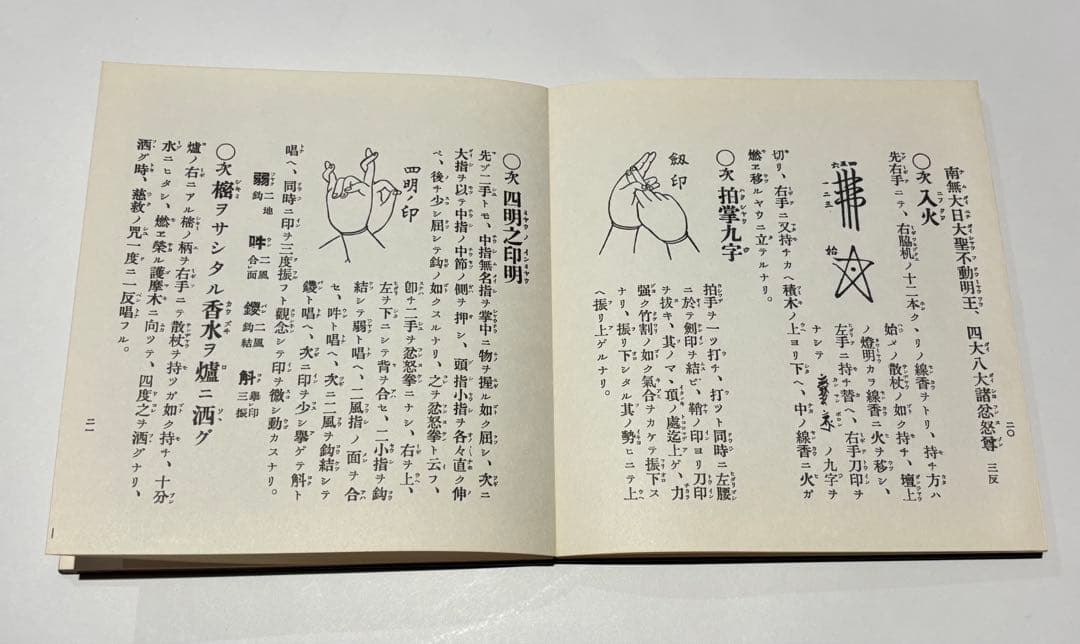 南無大日大聖不動明王、四大八大諸忿怒尊 三反
◯次 入火
先右手ニテ、右脇机ノ十二本ク、リノ線香ヲトリ、持チ方ハ
始メノ散杖ノ如ク持チ、壇上
ノ燈明カラ線香ニ火ヲ移シ、
左手ニ持チ替ヘ、右手刀印ヲ
ナシテ ノ九字ヲ
切リ、右手ニ又持チカヘ積木ノ上ヨリ下ヘ、中ノ線香ニ火ガ
燃エ移ルヤウニ立テルナリ。
始
一二三
◯次 拍掌九字
劔印
拍手ヲ一ツ打チ、打ツト同時ニ左腰
ニ於テ劍印ヲ結ビ、鞘ノ印ヨリ刀印
ヲ拔キ、其ノマ、頂ノ處迄上ゲ、力
强ク竹割ノ如ク氣合ヲカケテ振下ス
ナリ、振リ下シタル其ノ勢ヒニテ上
ヘ振リ上ゲルナリ。
二〇
◯次 四明之印明
先ヅ二手トモ、中指無名指ヲ掌中ニ物ヲ握ル如ク屈シ、次ニ
大指ヲ以テ中指ノ中節ノ側ヲ押シ、頭指小指ヲ各々直ク伸
ベ、後チ少シ屈シテ鈎ノ如クスルナリ、之ヲ忿怒拳ト云フ、
四明ノ印
卽チ二手ヲ忿怒拳ニナシ、右ヲ上、
左ヲ下ニシテ背ヲ合セ、二小指ヲ鈎
結シテ弱ト唱ヘ、二風指ノ面ヲ合
セ、吽ト唱ヘ、次ニ二風ヲ鈎結シテ
鑁ト唱ヘ、次ニ印ヲ少シ擧ゲテ斛ト
唱ヘ、同時ニ印ヲ三度振フト觀念シテ印ヲ微シ動カスナリ。
弱 二地鈎 吽 二風合面 鑁 二風鈎結 斛 擧印三振
◯次 樒ヲサシタル香水ヲ爐ニ洒グ
爐ノ右ニアル樒ノ柄ヲ右手ニテ散杖ヲ持ツガ如ク持チ、十分
水ニヒタシ、燃エ榮ル護摩木ニ向ツテ、四度之ヲ洒グナリ、
洒グ時、慈救ノ咒一度ニ一反唱フル。
二一